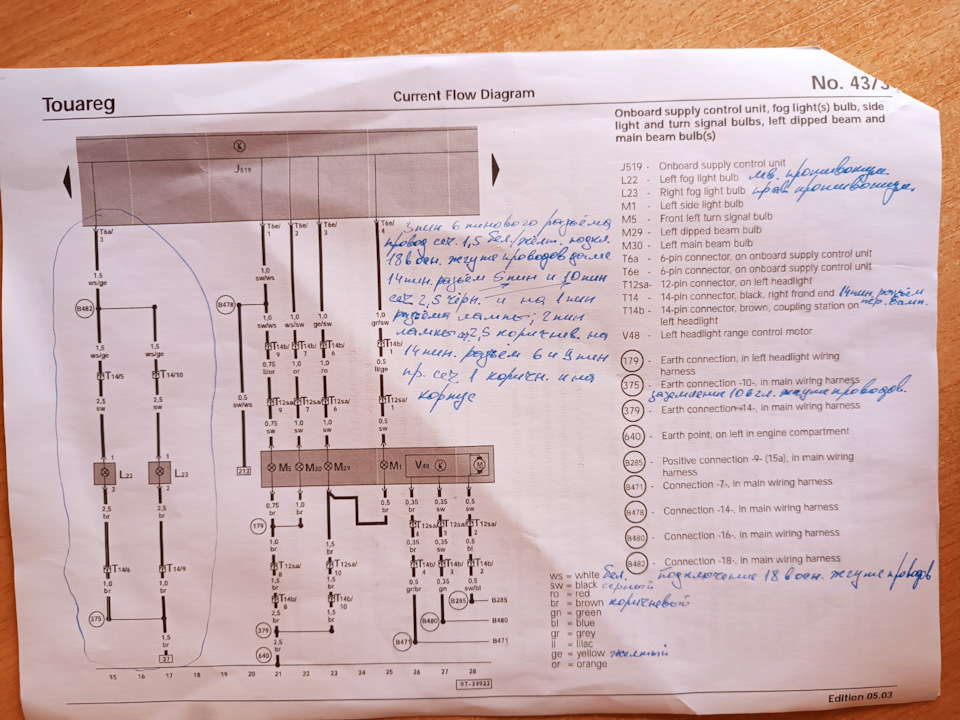 Touareg
Current Flow Diagram
No. 43/3
Onboard supply control unit, fog light(s) bulb, side
light and turn signal bulbs, left dipped beam and
main beam bulb(s)
J519 - Onboard supply control unit
L22 - Left fog light bulb лев. противотум.
L23 - Right fog light bulb прав. противотум.
M1 - Left side light bulb
M5 - Front left turn signal bulb
M29 - Left dipped beam bulb
M30 - Left main beam bulb
T6a - 6-pin connector, on onboard supply control unit
T6e - 6-pin connector, on onboard supply control unit
T12sa- 12-pin connector, on left headlight
T14 - 14-pin connector, black, right frond end 14 пин. разъём
T14b - 14-pin connector, brown, coupling station on
left headlight
V48 - Left headlight range control motor
179 - Earth connection, in left headlight wiring
harness
375 - Earth connection -10-, in main wiring harness
заземление 10 в гл. жгуте проводов.
379 - Earth connection -14-, in main wiring harness
640 - Earth point, on left in engine compartment
B285 - Positive connection -9- (15a), in main wiring
harness
B471 - Connection -7-, in main wiring harness
B478 - Connection -14-, in main wiring harness
B480 - Connection -16-, in main wiring harness
B482 - Connection -18-, in main wiring harness
подключение 18 в осн. жгуте проводов
ws = white бел.
sw = black чёрный
ro = red
br = brown коричневый
gn = green
bl = blue
gr = grey
li = lilac
ge = yellow желтый
or = orange
3 пин 6 пинового разъёма
провод сеч. 1,5 бел./желт. подкл.
18 в осн. жгуте проводов далее
14 пин. разъём 5 пин и 10 пин
сеч 2,5 чёрн. и на 1 пин
разъёма лампы; 2 пин
лампы 2,5 коричнев. на
14 пин. разъем 6 и 9 пин
пр. сеч 1 коричн. и на
корпус
K
J519
T6a/
3
T6e/
1
T6e/
2
T6e/
3
T6e/
4
1,5
ws/ge
1,0
sw/ws
B482
B478
1,0
sw/ws
1,0
ws/sw
1,0
ge/sw
1,0
gr/sw
1,5
ws/ge
1,5
ws/ge
T14b/
9
T14b/
7
T14b/
6
T14b/
1
T14/5
T14/10
0,75
li/or
1,0
or
1,0
ro
0,5
li/ge
2,5
sw
2,5
sw
0,5
sw/ws
T12sa/
9
T12sa/
7
T12sa/
6
T12sa/
1
0,75
sw
1,0
sw
1,0
sw
0,5
sw
1
L22
2
1
L23
2
213
M5
M30
M29
M1
V48
K
M
2,5
br
2,5
br
0,75
br
1,0
br
0,5
br
0,35
br
0,35
sw
0,5
sw
179
T12sa/
4
T12sa/
3
T12sa/
2
1,0
br
1,5
br
0,35
br
0,35
sw
0,5
bl
T14/6
T14/9
T12sa/
8
T12sa/
10
T14b/
4
T14b/
3
T14b/
2
1,0
br
1,0
br
1,0
br
1,5
br
0,5
gr/br
0,5
gn
0,5
sw/bl
T14b/
8
T14b/
10
B285
B285
375
2,5
br
1,5
br
B480
B480
1,5
br
379
B471
B471
2,5
br
37
640
15 16 17 18 19 20 21 22 23 24 25 26 27 28
97-24922
Edition 05.03